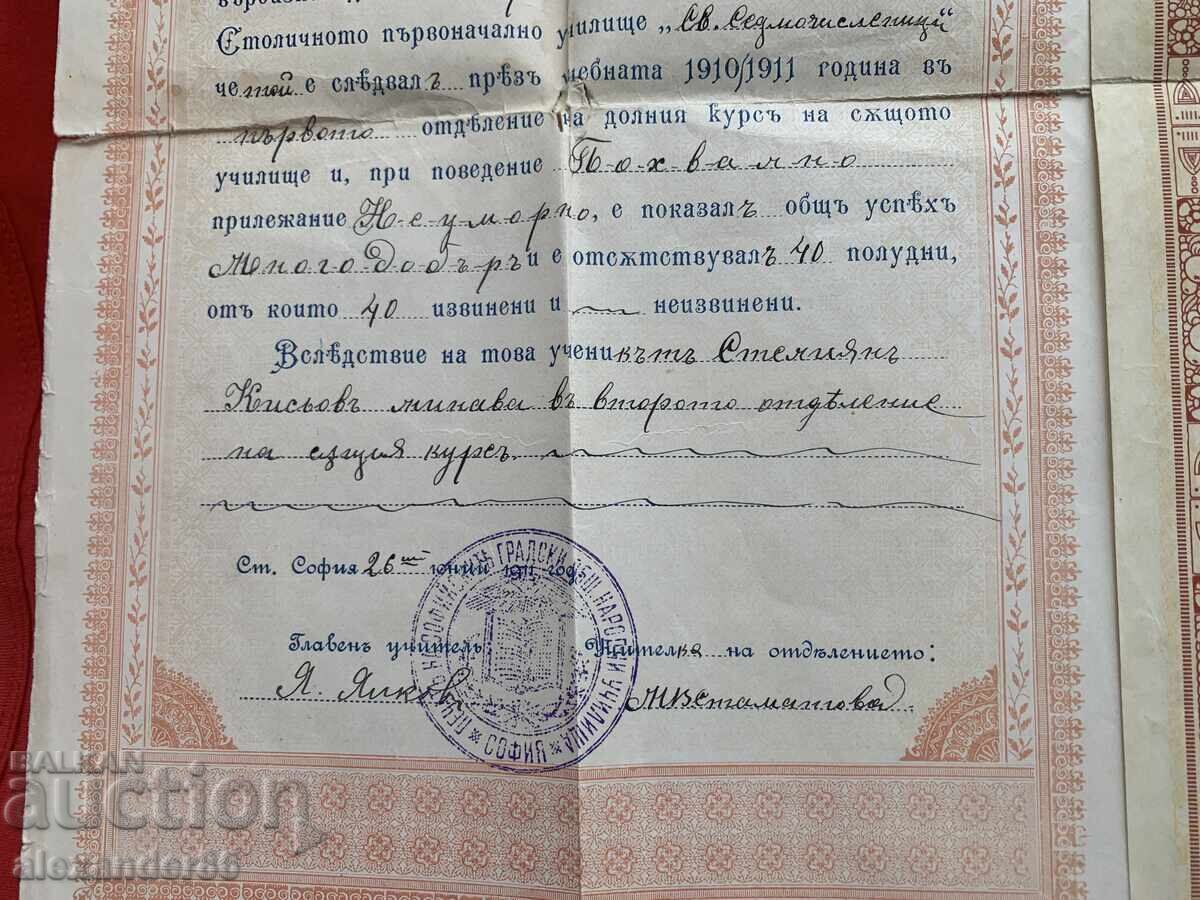 Столичното първоначално училище „Св. Седмочисленици"
че той е слѣдвалъ прѣзъ учебната 1910/1911 година въ
първото отдѣление на долния курсъ на сѫщото
училище и, при поведение Похвално
прилежание Неуморно, е показалъ общъ успѣхъ
Много добъръ и е отсѫтствувалъ 40 полудни,
отъ които 40 извинени и неизвинени.
Вслѣдствие на това ученикътъ Стелиянъ
Кисьовъ минава въ второто отдѣление
на сѫщия курсъ.
Ст. София 26ий юний 1911 год.
Главенъ учитель: Учителка на отдѣлението:
Я. Янков
ПЕЧАТЪ НА СОФИЙСКИТѢ ГРАДСКИ ОБЩ НАРОДНИ УЧИЛИЩА
СОФИЯ
BALKAN
auction
alexander86